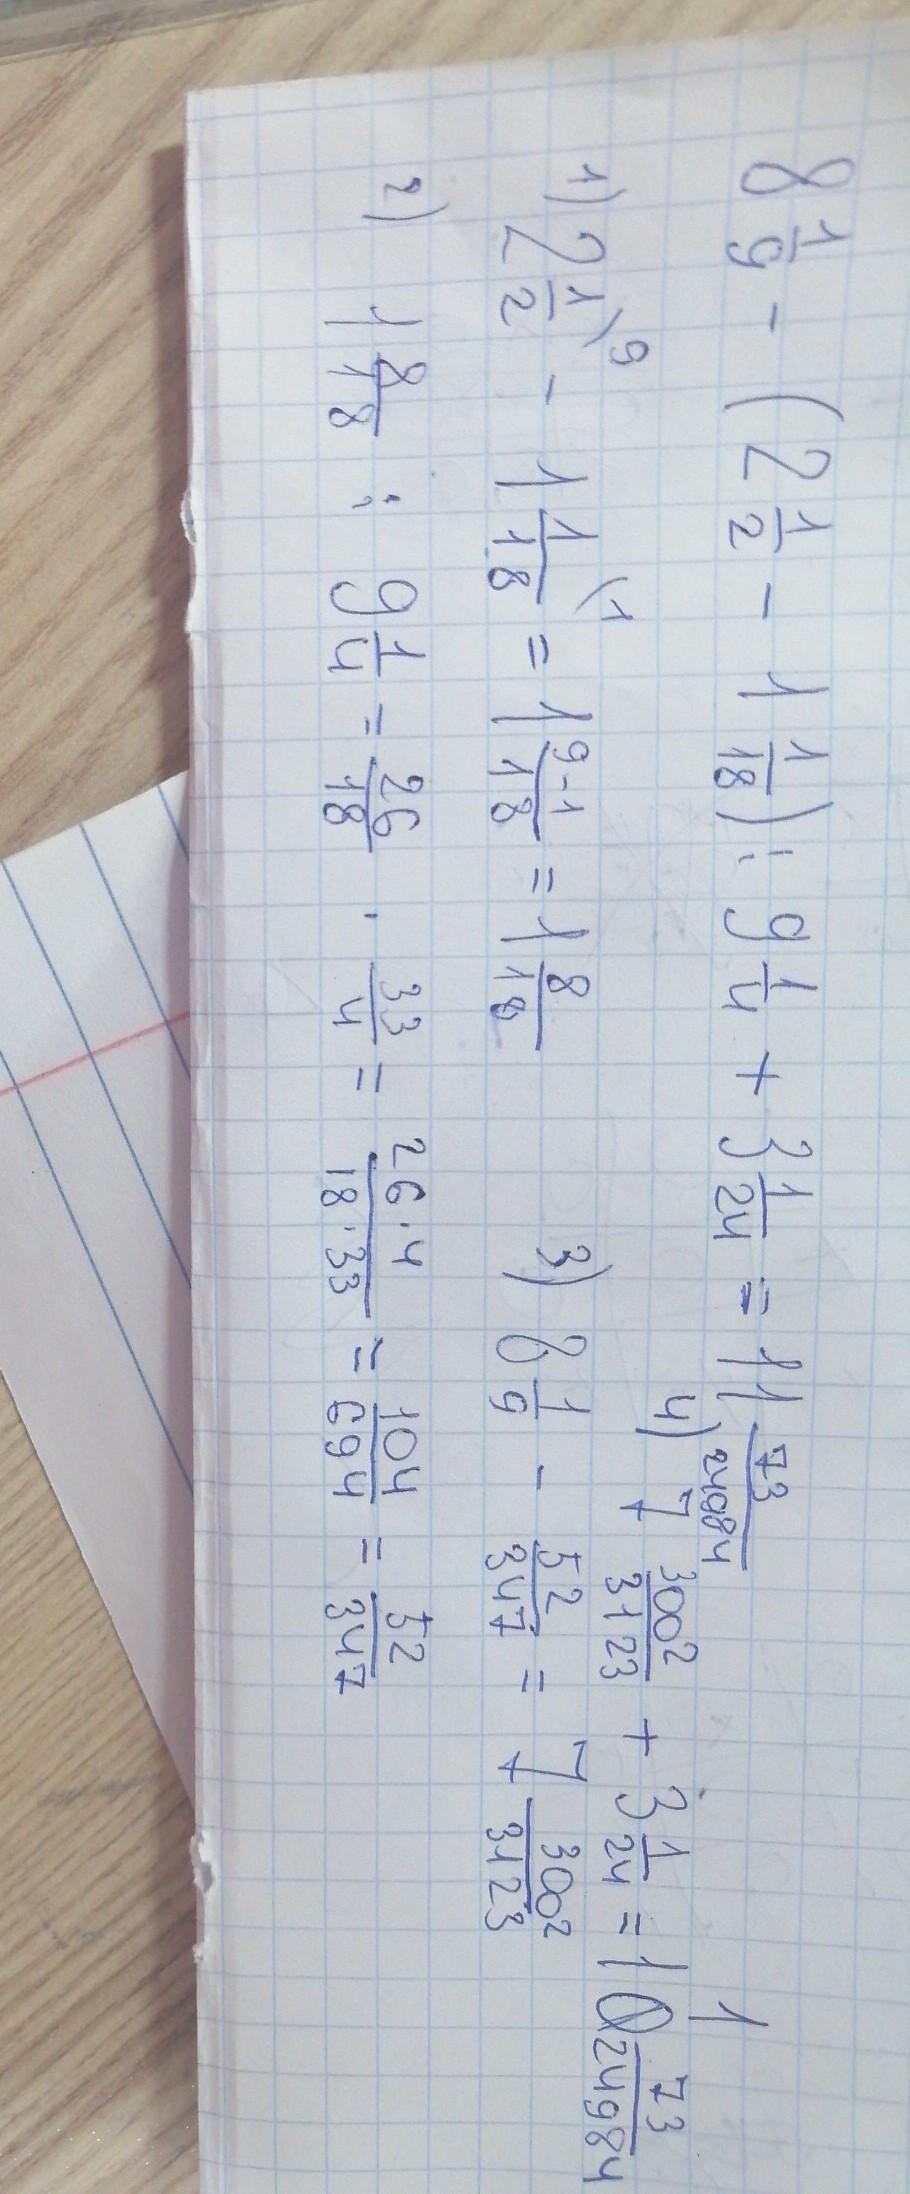 8 1/9 - (2 1/2 - 1 1/18) : 9 1/4 + 3 1/24 = 11 73/24984
1) 2 1/2 \9 - 1 1/18 \1 = 1 9-1/18 = 1 8/18
2) 1 8/18 : 9 1/4 = 26/18 · 33/4 = 26·4/18·33 = 104/694 = 52/347
3) 8 1/9 - 52/347 = 7 3002/3123
4) 7 3002/3123 + 3 1/24 = 10 73/24984
1